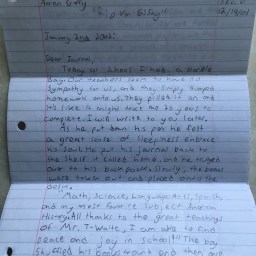 Arron
12/19/01
January 2nd 2002:
Dear Journal,
Today at school I had to
day. Our teachers seem to have no
sympathy for us, and they simply dumped
homework onto us. They piled it on and
it's like it might take me 20 years to
complete. I will write to you later.
As he put down his pen he felt
a great sense of sleepiness embrace
his soul. He put his journal back to
the shelf it called home, and he
out to his backpack. Slowly, the books
were taken out and placed onto the
desk.
Math, Science, Language Arts, Spanish,
and my most favorite subject American
History. All thanks to the great teachings
of Mr. T-Waite, I am able to find
peace and joy in school!" The boy
his books around and then